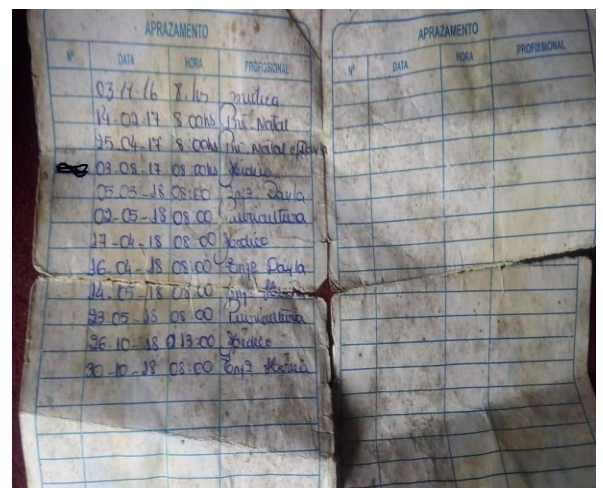 APRAZAMENTO
Nº DATA HORA PROFISSIONAL
03.11.16 8.hs médica
14-02-17 8:00hs Pré Natal
25-04-17 8:00hs Pré Natal
03.08.17 08:00hs Médico
05.03-18 08:00 Enfª Paula
02-05-18 08:00 Puericultura
17-04-18 08:00 Médico
16.04-18 08:00 Enfª Paula
14-05-18 08:00 Enfª
23.05-18 08:00 Puericultura
26-10-18 13:00 Médico
30-10-18 08:00 Enfª
APRAZAMENTO
Nº DATA HORA PROFISSIONAL